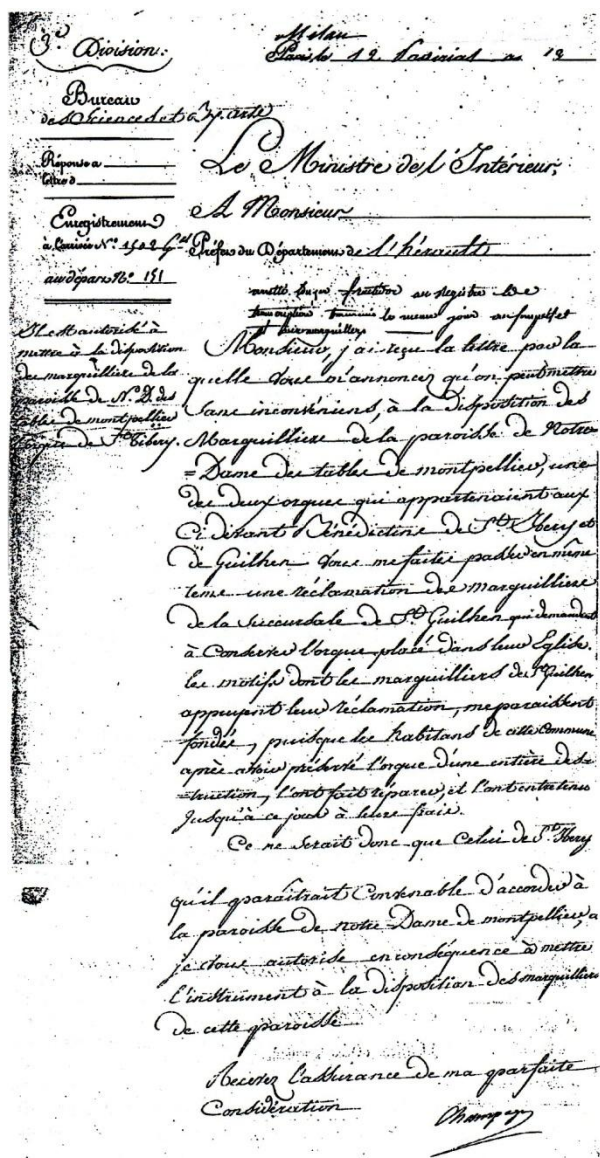 3e Division.
Bureau
des Sciences et Bx arts
Réponse a
lettre d
Enregistrement
à l'arrivée No. 1502 Gal
au départ No. 151
Il est autorisé à
mettre à la disposition
des marguilliers de la
paroisse de N. D. des
tables de montpellier
l'orgue de St. Tibery.
Milan
Paris, le 12 Prairial an 13
Le Ministre de l'Intérieur,
A Monsieur
Préfet du Département de l'hérault
au Registre de
transcription le meme jour
et aux marguilliers
Monsieur, j'ai reçu la lettre par la
quelle vous m'annoncez qu'on peut mettre
sans inconvéniens, à la disposition des
Marguilliers de la paroisse de Notre
=Dame des tables de montpellier, une
des deux orgues qui appartenaient aux
Ci devant Bénédictins de St. Ibery et
de Guilhen vous me faites passer en même
tems une réclamation des marguilliers
de la succursale de St. Guilhen qui demandent
à Conserver l'orgue placé dans leur Eglise.
les motifs dont les marguilliers de St. Guilhen
appuyent leur réclamation, me paraissent
fondés, puisque les habitans de cette Commune
après avoir préservé l'orgue d'une entière des-
=truction, l'ont fait réparer, et l'ont entretenu
jusqu'à ce jour à leurs frais.
Ce ne serait donc que Celui de St. Ibery
qu'il paraîtrait Convenable d'accorder à
la paroisse de notre Dame de montpellier,
je vous autorise en conséquence à mettre
l'instrument à la disposition des marguilliers
de cette paroisse
Recevez l'assurance de ma parfaite
Considération
Champagny